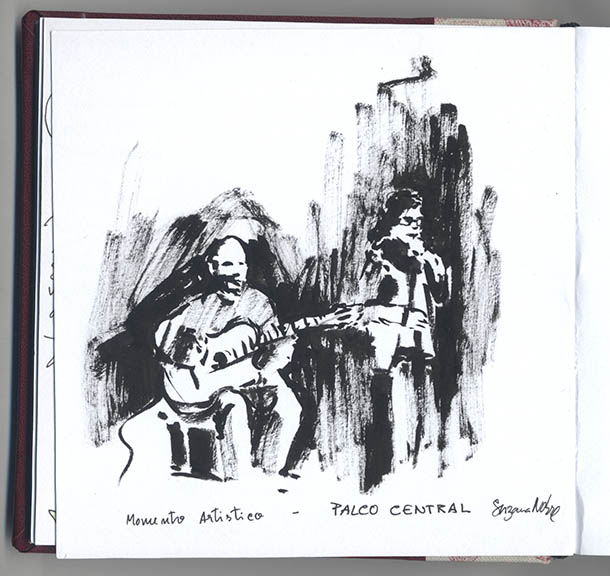 Momento Artistico - PALCO CENTRAL Suzana Nobre